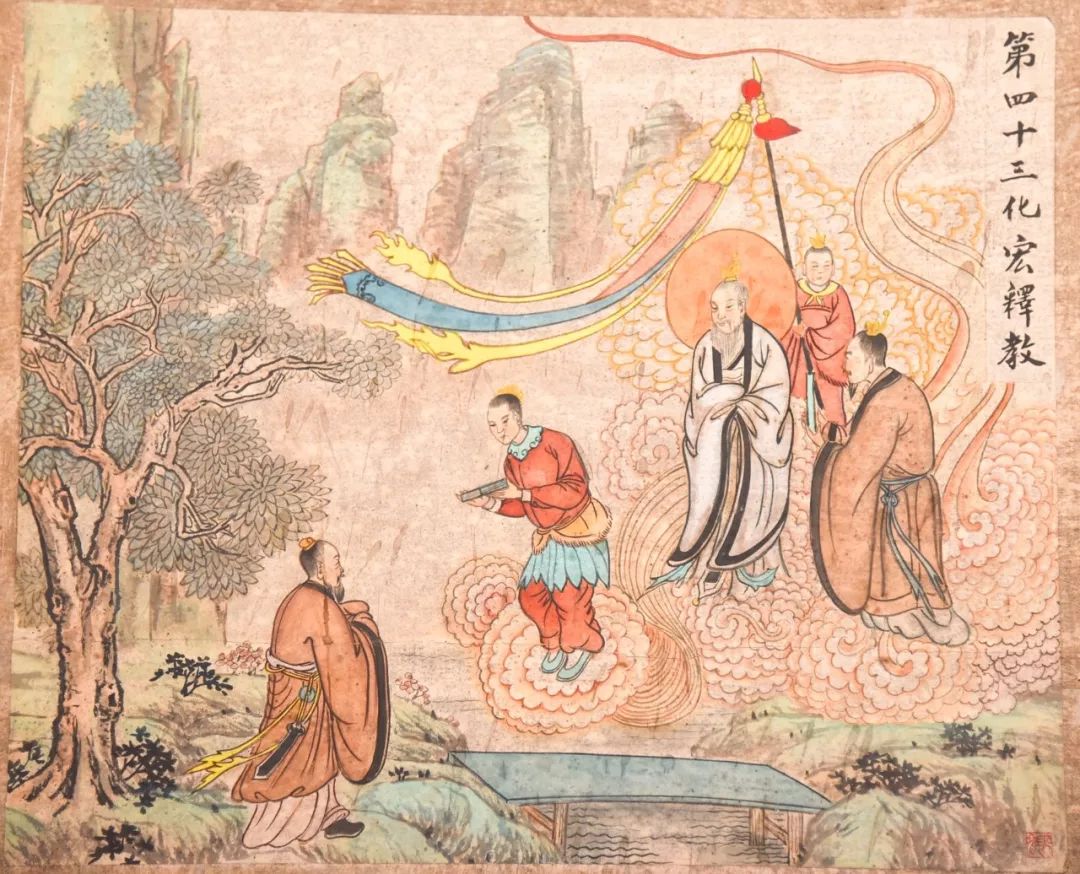 第四十三化宏釋教